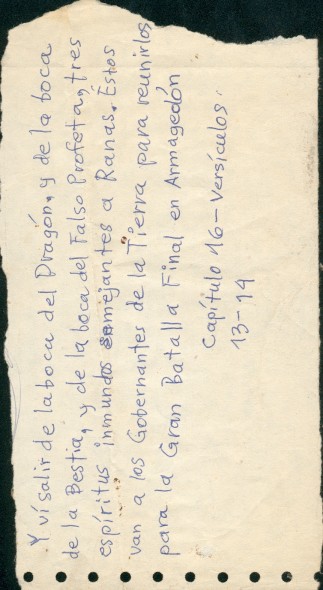 Y ví salir de la boca del Dragón, y de la boca
de la Bestia, y de la boca del Falso Profeta, tres
espíritus inmundos semejantes a Ranas. Éstos
van a los Gobernantes de la Tierra para reunirlos
para la Gran Batalla Final en Armagedón
Capítulo 16 - versículos.
13-14